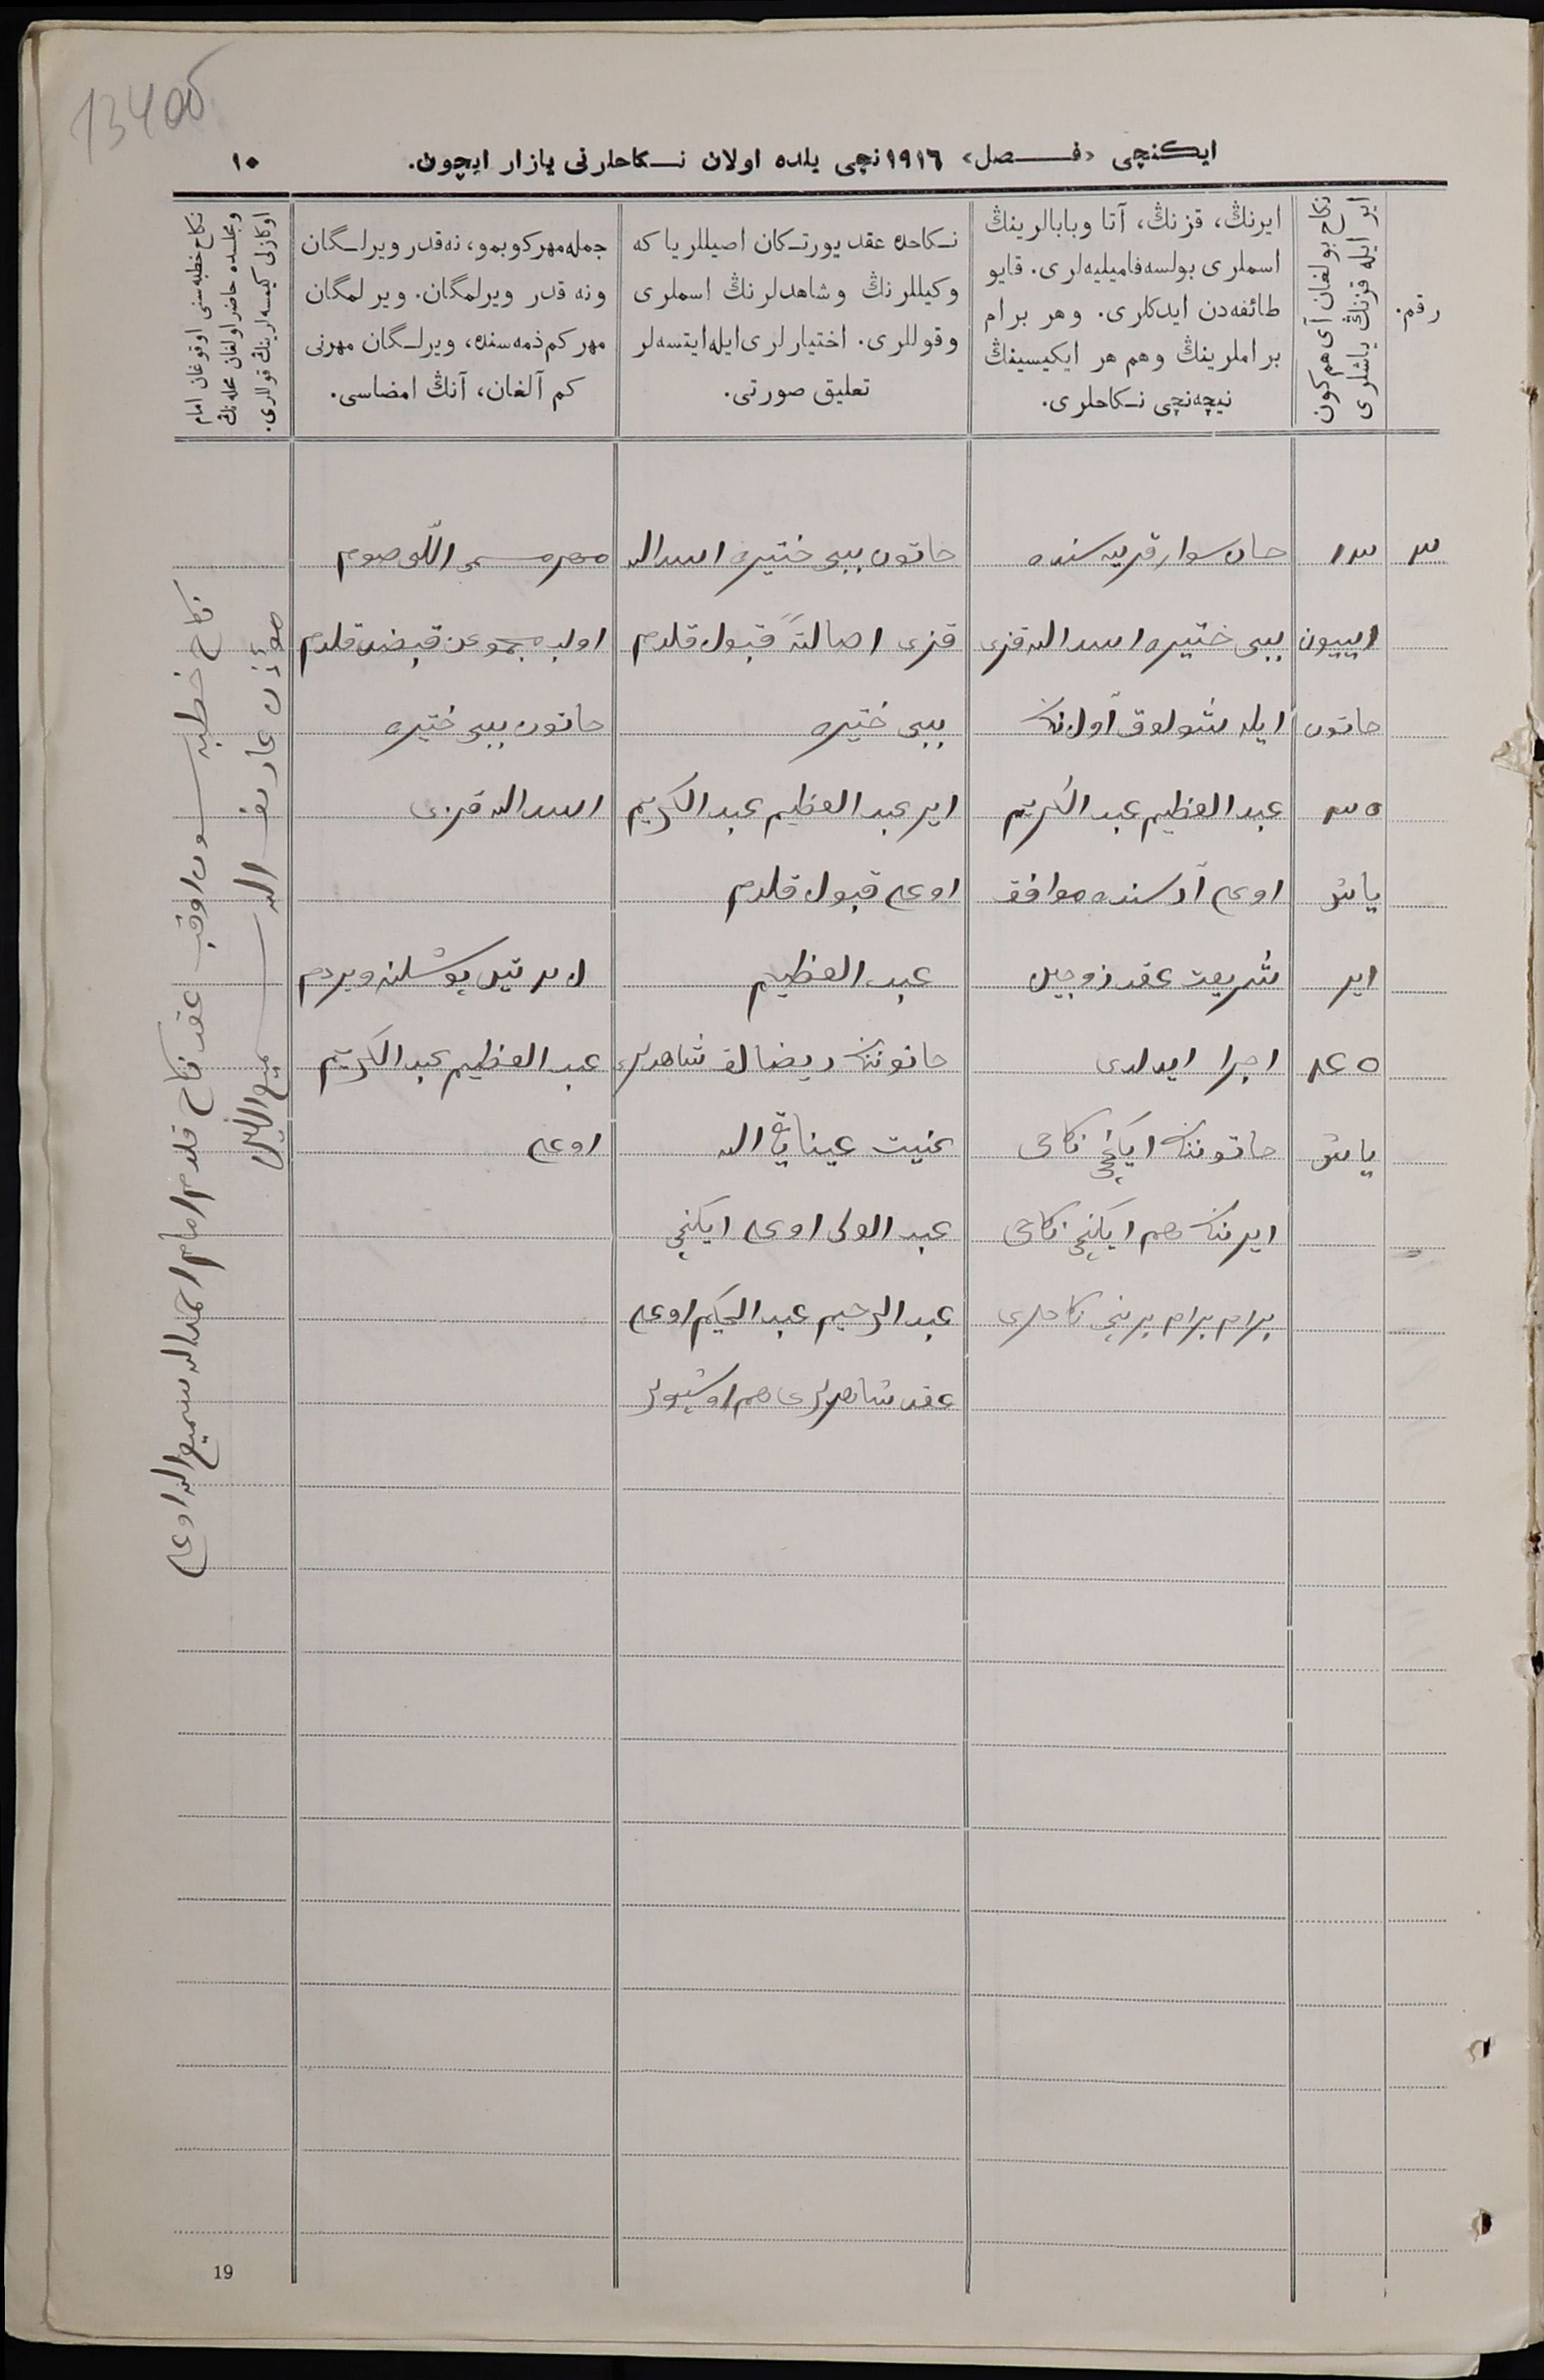 134об
ایکنچی «فصل» ١٩١٦ نچی یلده اولان نکاحلرنی یازار ایچون.
١٠
رقم.
نکاح بولغان آی هم کون
ایر ایله قزنڭ یاشلری
ایرنڭ، قزنڭ، آتا وبابالرینڭ
اسملری بولسه فامیلیه‌لری. قایو
طائفه‌دن ایدکلری. وهر برام
براملرینڭ وهم هر ایکیسینڭ
نیچه‌نچی نکاحلری.
نکاحده عقد یورتکان اصیللر یا که
وکیللرنڭ وشاهدلرنڭ اسملری
وقوللری. اختیارلری ایله ایتسه‌لر
تعلیق صورتی.
جمله مهر کوبمو، نه قدر ویرلگان
ونه قدر ویرلمگان. ویرلمگان
مهر کم ذمه‌سنده، ویرلگان مهرنی
کم آلغان، آنڭ امضاسی.
نکاح خطبه‌سنی اوقوغان امام
ومجلسده حاضر اولغان محله‌نڭ
اوکازلی کیمسه‌لرینڭ قوللری.
٣
١٣
اییون
خاتون
٣٥
یاش
ایر
٤٥
یاش
جان سوار قریه سنده
بیبی ختیره اسدالله قزی
ایله شولوق آولنڭ
عبدالعظیم عبدالکریم
اوغلی آراسنده موافق
شریعت عقد زوجین
اجرا ایدلدی
خاتوننڭ ایکنچی نکاحی
ایرنڭ هم ایکنچی نکاحی
برام برام برنچی نکاحلری
خاتون بیبی ختیره اسدالله
قزی اصالةً قبول قلدم
بیبی ختیره
ایر عبدالعظیم عبدالکریم
اوغلی قبول قلدم
عبدالعظیم
خاتوننڭ ریضالق شاهدلری
عنیت عینایة الله
عبدالولی اوغلی ایکنچی
عبدالرحیم عبدالحکیم اوغلی
عقد شاهدلری هم اوشبولر
مهر مسمی اللی صوم
اولب مجموعن قبض قلدم
خاتون بیبی ختیره
اسدالله قزی
عبدالعظیم عبدالکریم
اوغلی
نکاح خطبه سون اوقب عقد نکاح قلدم امام احمدالله سمیع الله اوغلی
مؤذن عارف الله
19